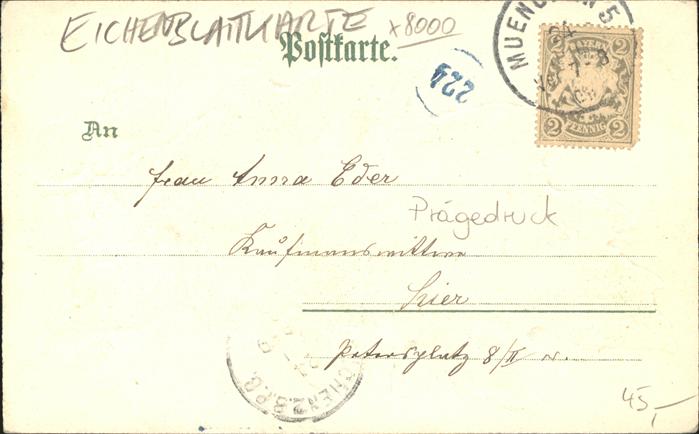 EICHENBLATTKARTE x8000
Postkarte.
MUENCHEN 5
BAYERN
2 2
2 PFENNIG 2
224
An
Frau Anna Eder
Prägedruck
Kaufmannswittwe
hier
Petersplatz 8/II r.
CHEN 2 B.P.O.
45,-